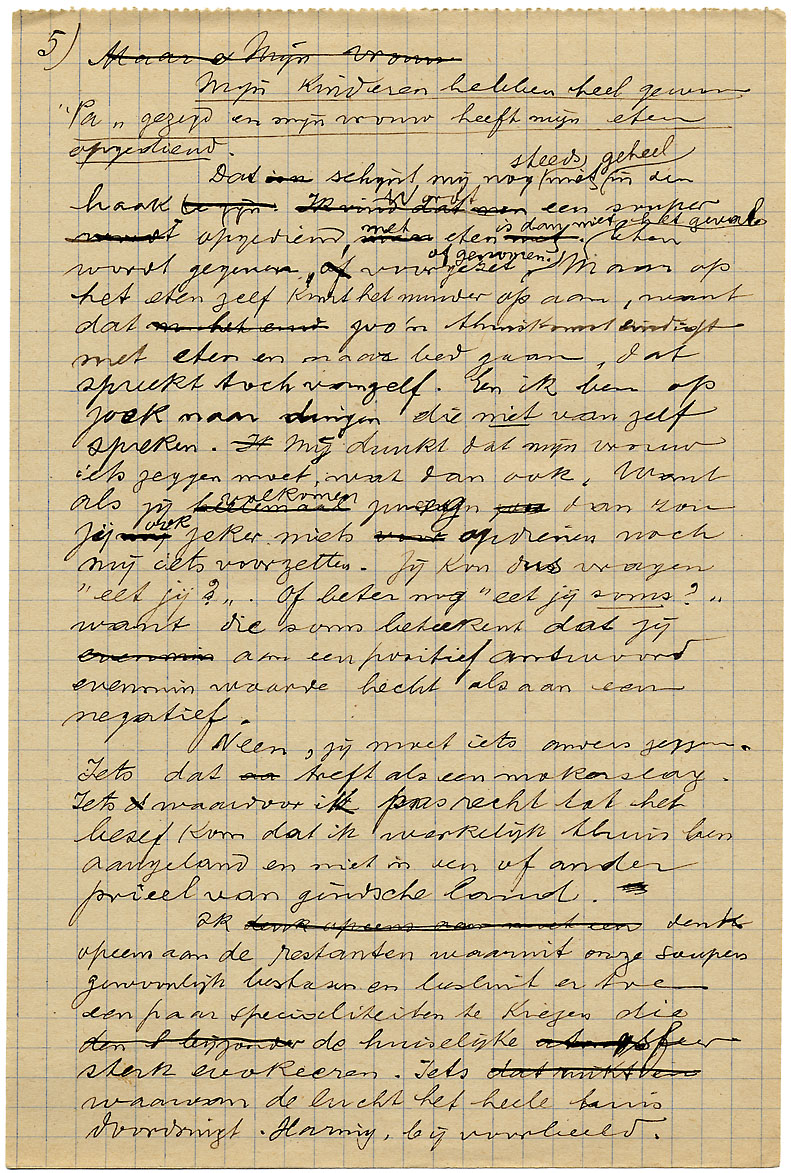 5)
Maar & Mijn vrouw
Mijn kinderen hebben heel gewoon
"Pa" gezegd en mijn vrouw heeft mijn eten
opgediend.
steeds geheel
Dat schijnt mij nog niet in den
wordt
haak te zijn. Ik vind dat men een souper
met is dan niet het geval
wordt opgediend, eten eten
of genomen.
wordt gegeven, of voorgezet. Maar op
het eten zelf komt het minder op aan, want
dat in het eind zoo'n thuiskomst eindigt
met eten en naar bed gaan, dat
spreekt toch vanzelf. En ik ben op
zoek naar dingen die niet van zelf
spreken. Ik Mij dunkt dat mijn vrouw
iets zeggen moet, wat dan ook. Want
volkomen
als zij heelemaal zweeg dan zou
ook
zij zeker niets voor opdienen noch
mij iets voorzetten. Zij kon dus vragen
"eet jij?". Of beter nog "eet jij soms?"
want die soms beteekent dat zij
evenmin aan een positief antwoord
evenmin waarde hecht als aan een
negatief.
Neen, zij moet iets anders zeggen.
Iets dat treft als een mokerslag.
Iets waardoor ik pas recht tot het
besef kom dat ik werkelijk thuis ben
aangeland en niet in een of ander
prieel van gindsche land.
Ik denk opeens aan met een denk
opeens aan de restanten waaruit onze soupers
gewoonlijk bestaan en besluit er toe
een paar specialiteiten te kiezen die
den bijzonder de huiselijke atmosfeer
sterk evokeeren. Iets dat ruikt en
waarvan de lucht het heele huis
doordringt. Haring, bij voorbeeld.